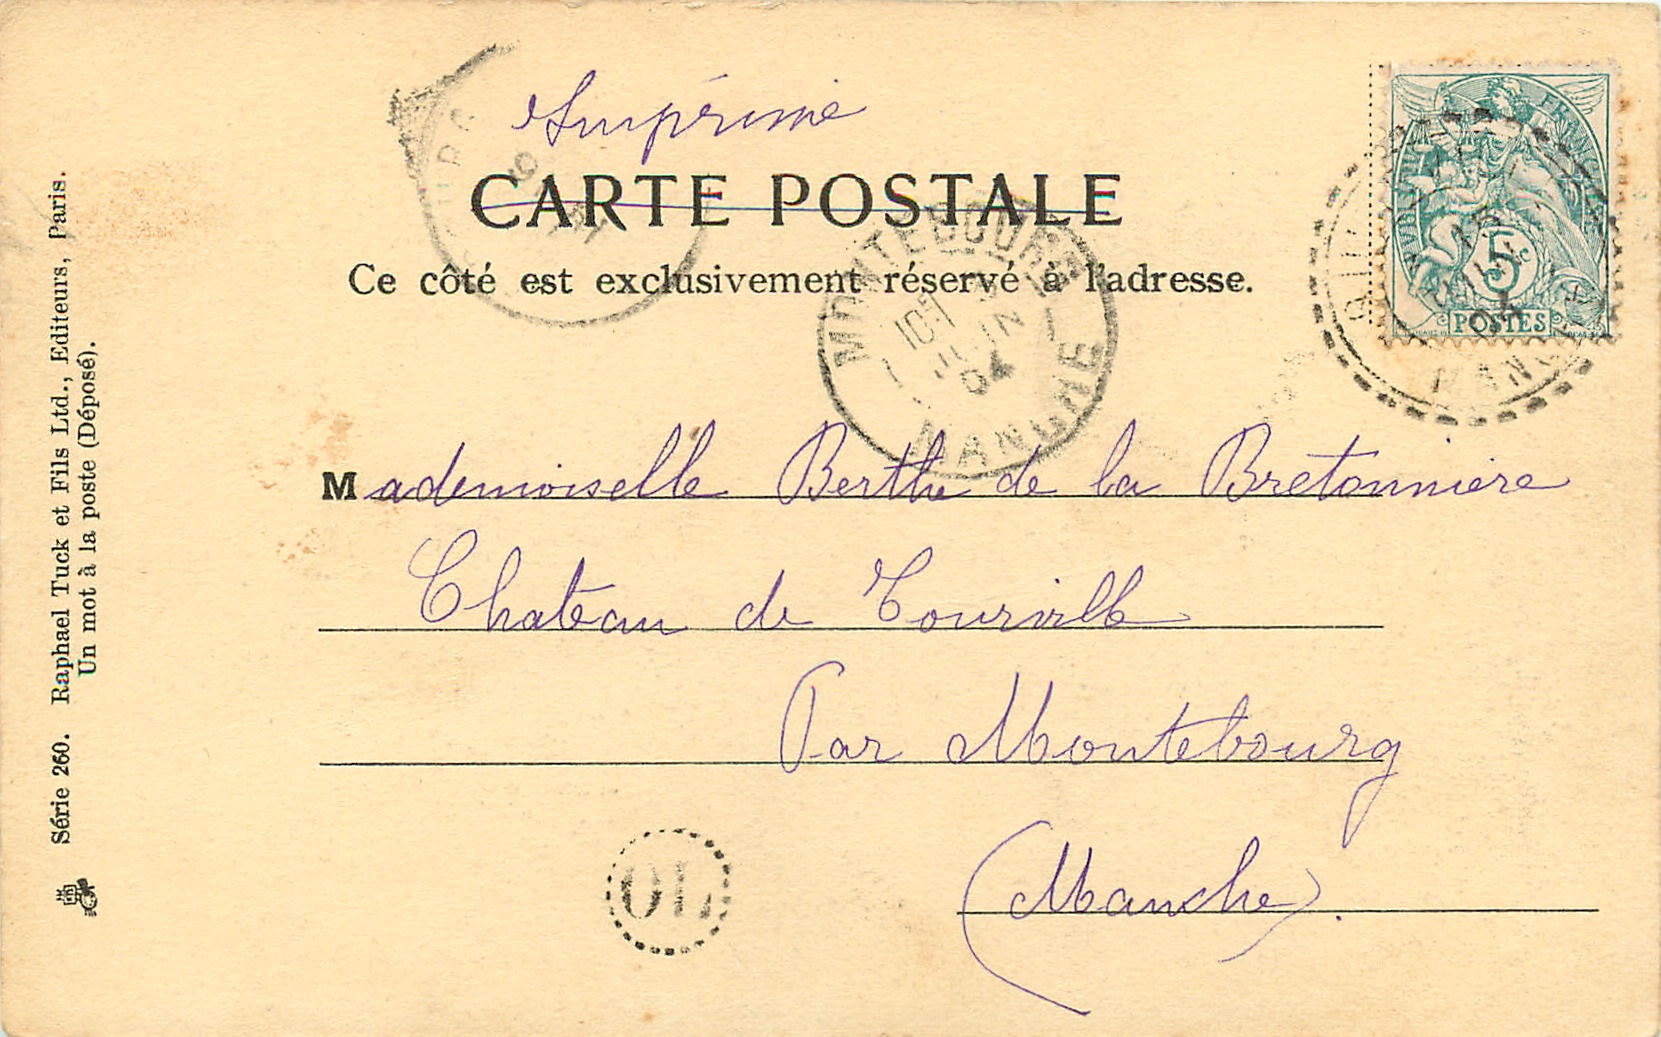 Imprimé
CARTE POSTALE
Ce côté est exclusivement réservé à l'adresse.
Mademoiselle Berthe de la Bretonniere
Chateau de Tourville
Par Montebourg
(Manche).
Série 260. Raphael Tuck et Fils Ltd., Editeurs, Paris.
Un mot à la poste (Déposé).
MONTEBOURG
JUIN
04
MANCHE
5
POSTES
MANCHE
OL